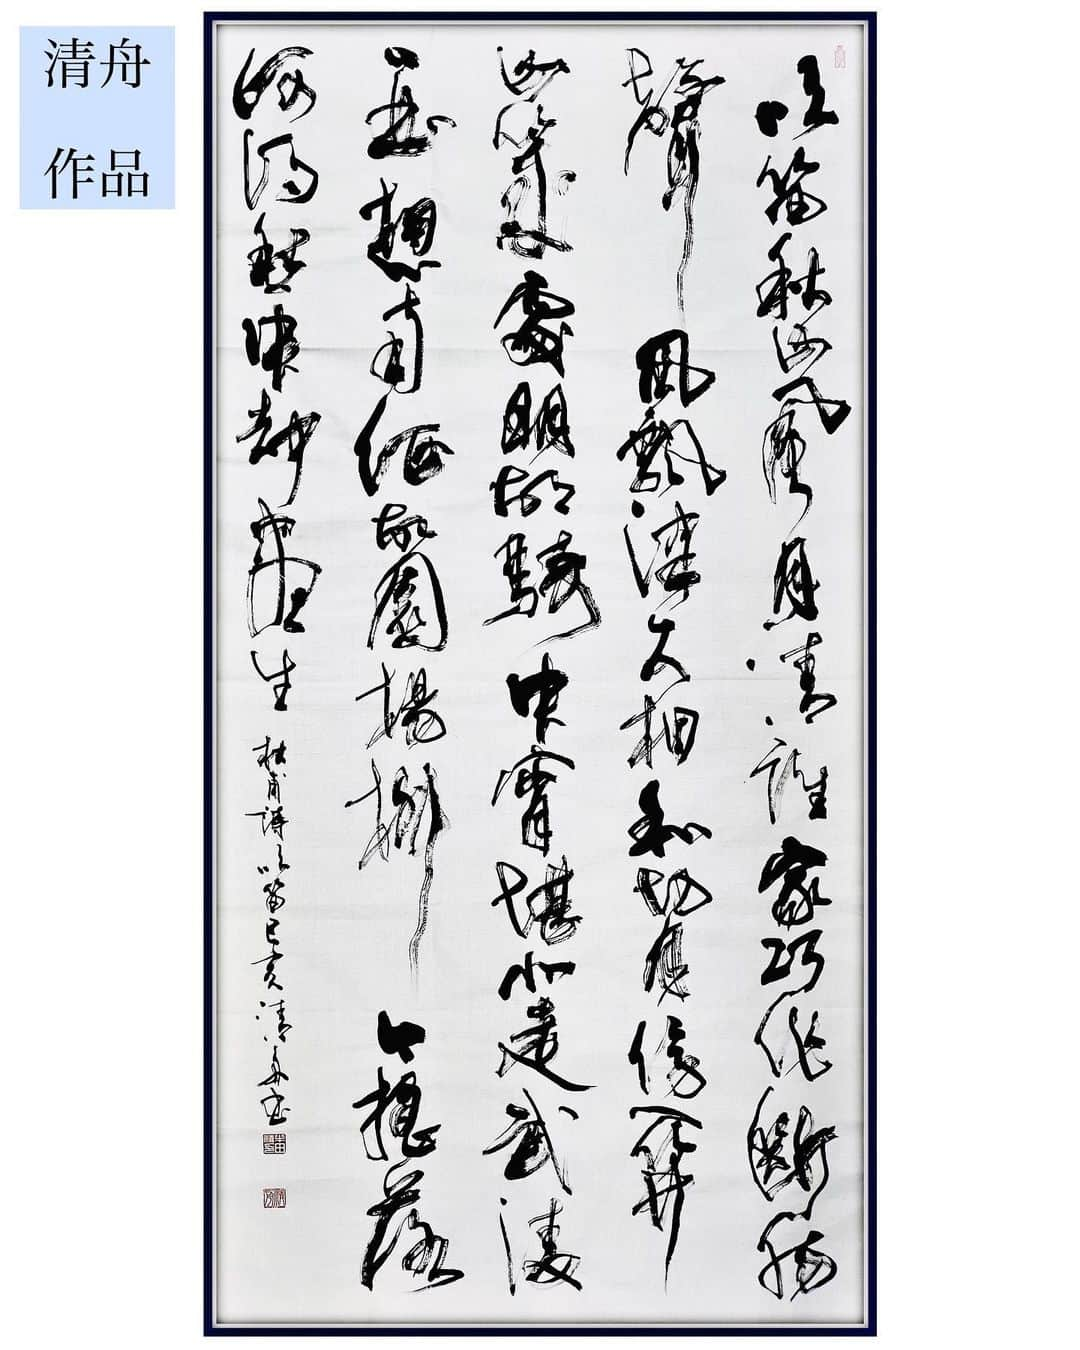 清舟
作品
吹笛秋山風月清誰家巧作斷腸
聲風飄律呂相和切月傍關
山幾處明胡騎中宵堪北走武陵
一曲想南征故園楊柳今搖落
何得愁中却盡生
杜甫詩吹笛己亥清舟書